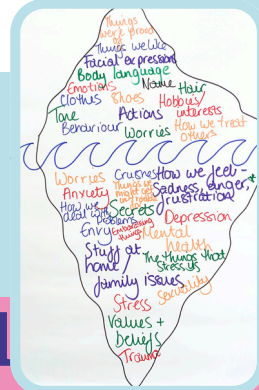 Things
we're proud
of
Things we like
Facial expressions
Body language
Emotions Name Hair
Clothes Shoes Hobbies/
interests
Tone Actions
Behaviour Worries How we treat
others
Worries Crushes How we feel -
Sadness, anger,
frustration
Anxiety Things we
might get
in trouble
How we
deal with
problems
Secrets
Depression
Envy Embarrassing
things
Mental
health
Stuff at
home/
family issues
The things that
stress us
Sexuality
Stress
Values +
Beliefs
Trauma